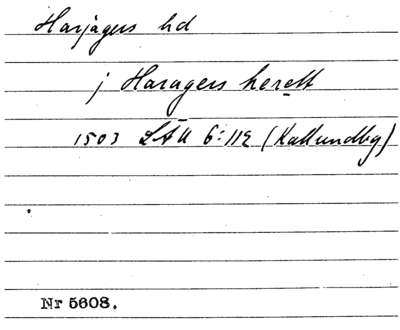 Harjagers hd
j Haragers herett
1503 LAU 6:112 (Kallundbg)
Nr 5608.